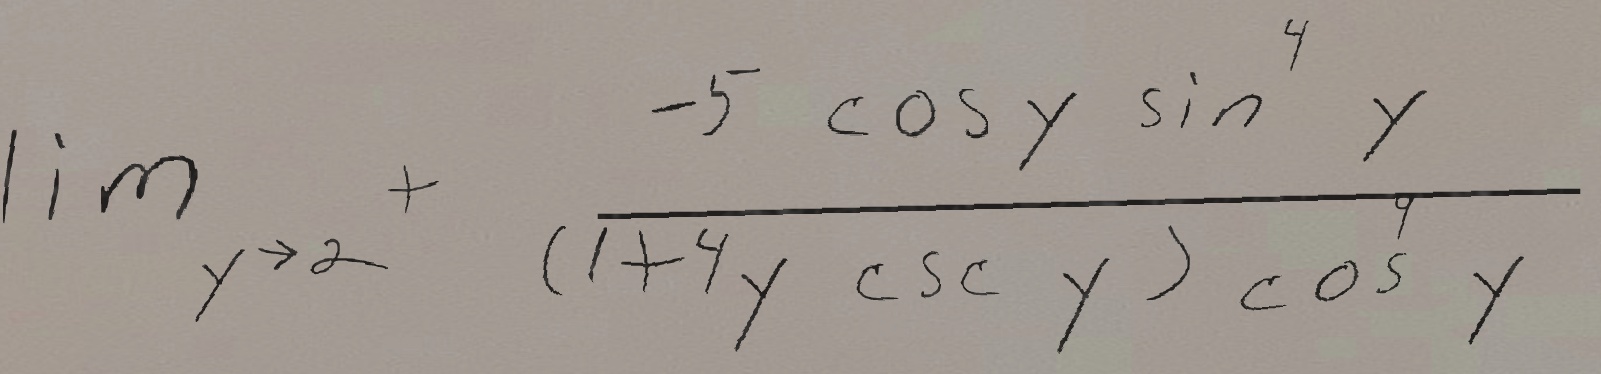 \lim_{y \to 2^+} \frac{-5 \cos y \sin^4 y}{(1+4y \csc y) \cos^9 y}